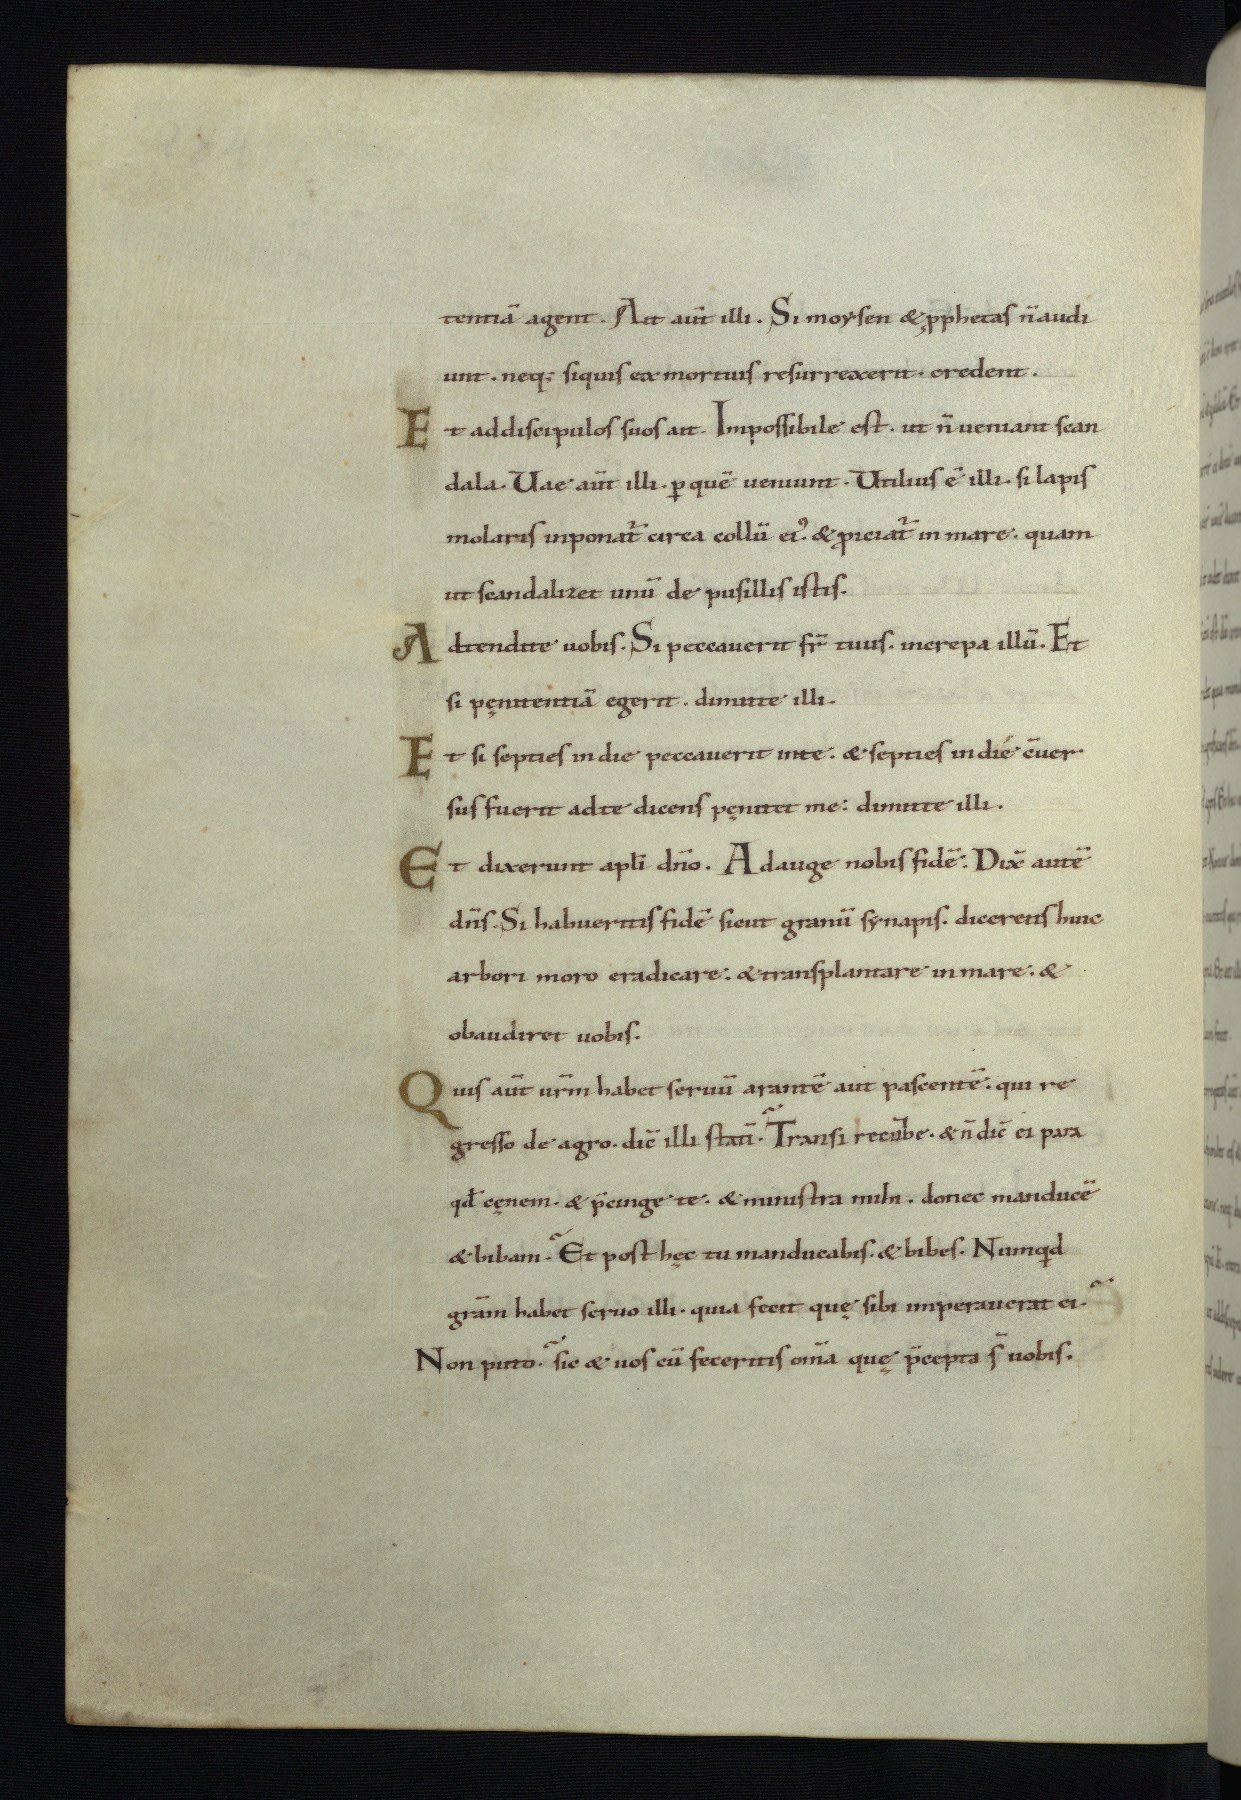 tentiā agent. Ait aūt illi. Si moysen & p̱phetas n̄ audi
unt. neq; siquis ex mortuis resurrexerit. credent.
Et ad discipulos suos ait. Impossibile est. ut n̄ veniant scan
dala. Uae aūt illi. ꝑ quē veniunt. Utilius ē illi. si lapis
molaris inponat᷑ circa collū eiꝰ. & ꝓiciat᷑ in mare. quam
ut scandalizet unū de pusillis istis.
Adtendite uobis. Si peccauerit fr̄ tuus. increpa illū. Et
si pęnitentiā egerit. dimitte illi.
Et si septies in die peccauerit in te. & septies in die c̄uer
sus fuerit ad te dicens pęnitet me: dimitte illi.
Et dixerunt apl̄i dn̄o. Adauge nobis fidē. Dix̄ autē
dn̄s. Si habueritis fidē sicut granū synapis. diceretis huic
arbori moro eradicare. & transplantare in mare. &
obaudiret uobis.
Quis aūt ūrm habet seruū arantē aut pascentē. qui re
gresso de agro. dic̄ illi statī. Transi recūbe. & n̄ dic̄ ei para
qđ cęnem. & p̄cinge te. & ministra mihi. donec manducē
& bibam. Et post hęc tu manducabis. & bibes. Numqd
grām habet seruo illi. quia fecit quę sibi imperauerat ei.
Non puto. sic & uos cū feceritis om̄a quę p̄cepta s̄ uobis.